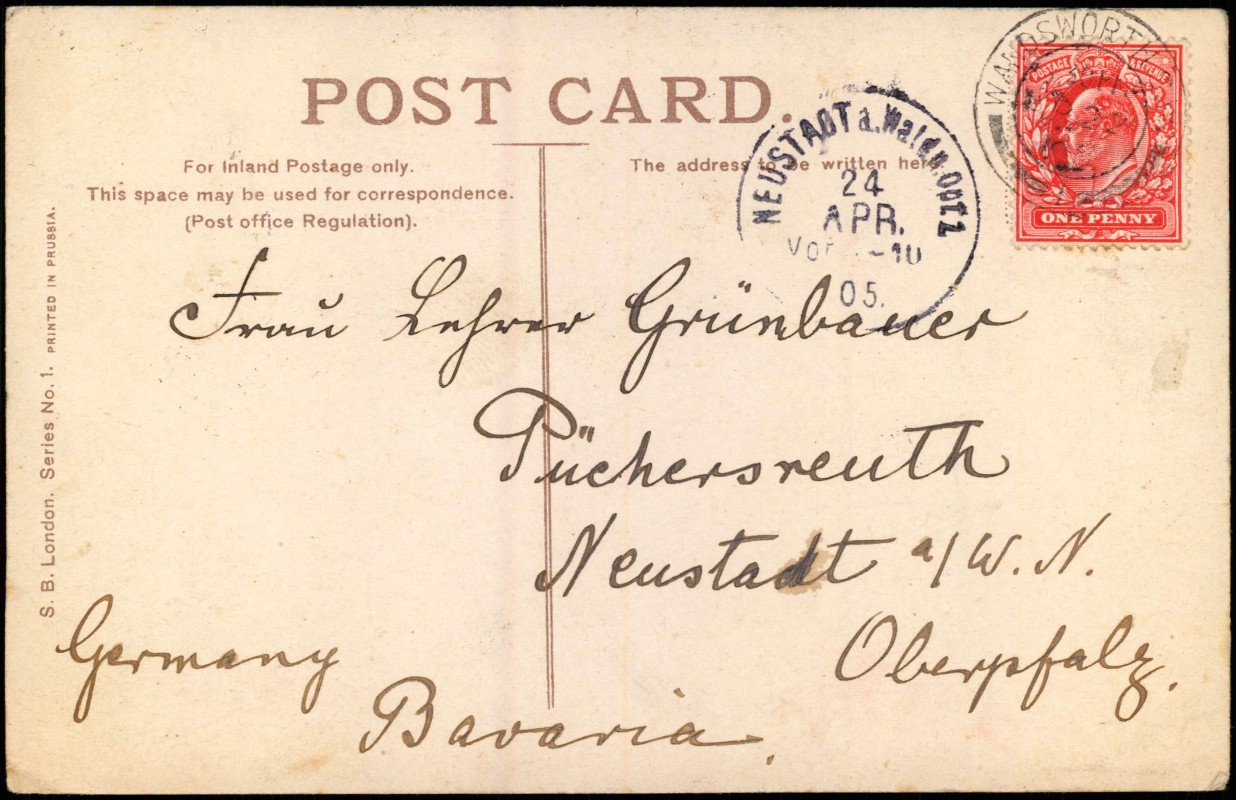 POST CARD.
For Inland Postage only.
This space may be used for correspondence.
(Post office Regulation).
The address to be written here.
WANDSWORTH
POSTAGE & REVENUE
ONE PENNY
NEUSTADT a. Waldn.
24
APR.
-10
05.
S. B. London. Series No. 1. PRINTED IN PRUSSIA.
Frau Lehrer Grünbauer
Püchersreuth
Neustadt a/W. N.
Oberpfalz.
Germany
Bavaria.